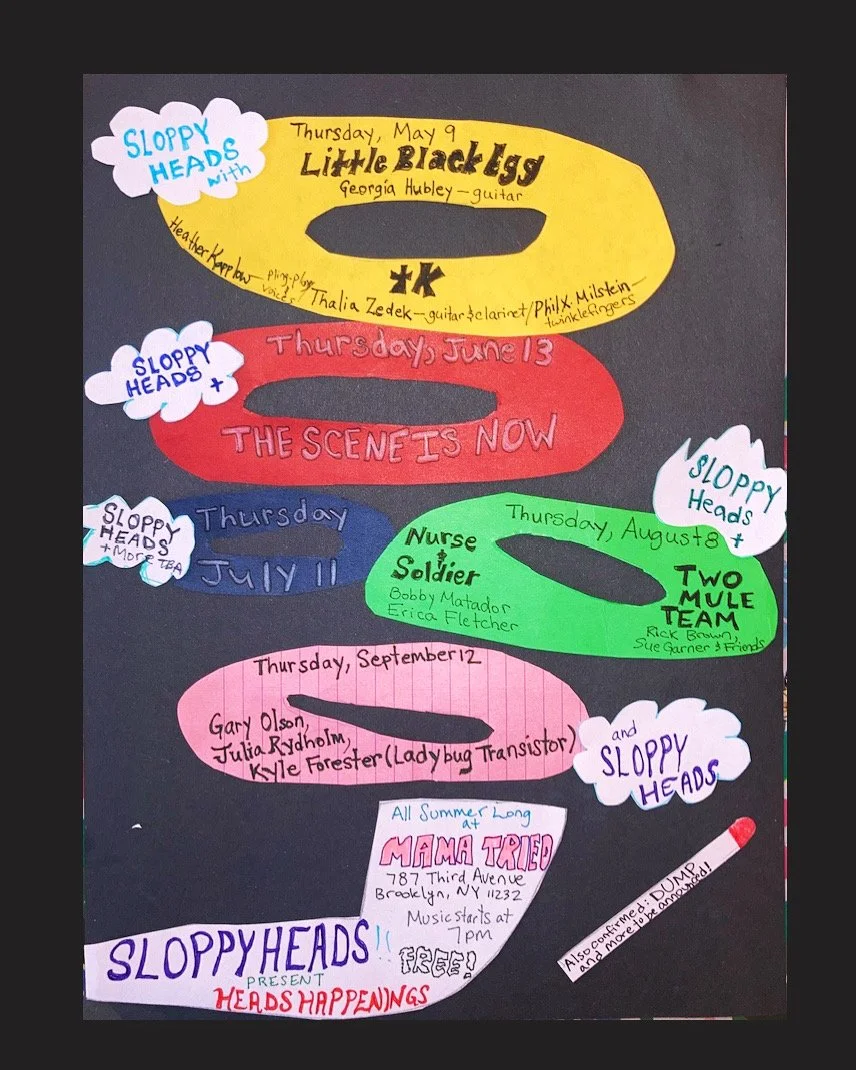 SLOPPY
HEADS
with
Thursday, May 9
Little Black Egg
Georgia Hubley - guitar
tK
Heather Kapplow - pling-plong
& voices /
Thalia Zedek - guitar & clarinet /
Phil X. Milstein -
twinklefingers
SLOPPY
HEADS +
Thursday, June 13
THE SCENE IS NOW
SLOPPY
HEADS
+ More TBA
Thursday
July 11
SLOPPY
Heads
+
Thursday, August 8
Nurse
&
Soldier
Bobby Matador
Erica Fletcher
TWO
MULE
TEAM
Rick Brown,
Sue Garner & Friends
Thursday, September 12
Gary Olson,
Julia Rydholm,
Kyle Forester (Ladybug Transistor)
and
SLOPPY
HEADS
All Summer Long
at
MAMA TRIED
787 Third Avenue
Brooklyn, NY 11232
Music starts at
7pm
FREE!
SLOPPY HEADS!!
PRESENT
HEADS HAPPENINGS
Also confirmed: DUMP
and more to be announced!